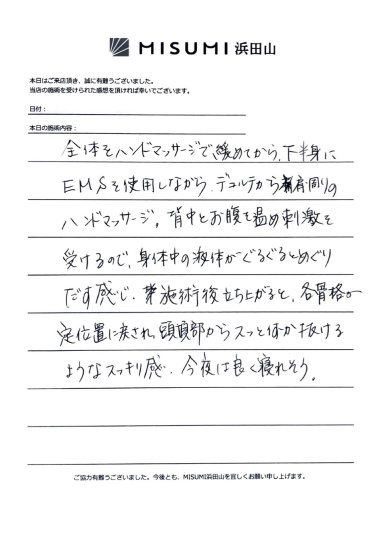 MISUMI浜田山
本日はご来店頂き、誠に有難うございました。
当店の施術を受けられた感想を頂ければ幸いでございます。
日付:
本日の施術内容:
全体をハンドマッサージで、緩めてから、下半身に
EMSを使用しながら、デコルテから肩周りの
ハンドマッサージ。背中とお腹を温め刺激を
受けるので、身体中の液体がぐるぐるとめぐり
だす感じ。施術後立ち上がると、各骨格が
定位置に戻され、頭頂部からスッと何か抜ける
ようなスッキリ感。今夜は良く寝れそう。
ご協力有難うございました。今後とも、MISUMI浜田山を宜しくお願い申し上げます。